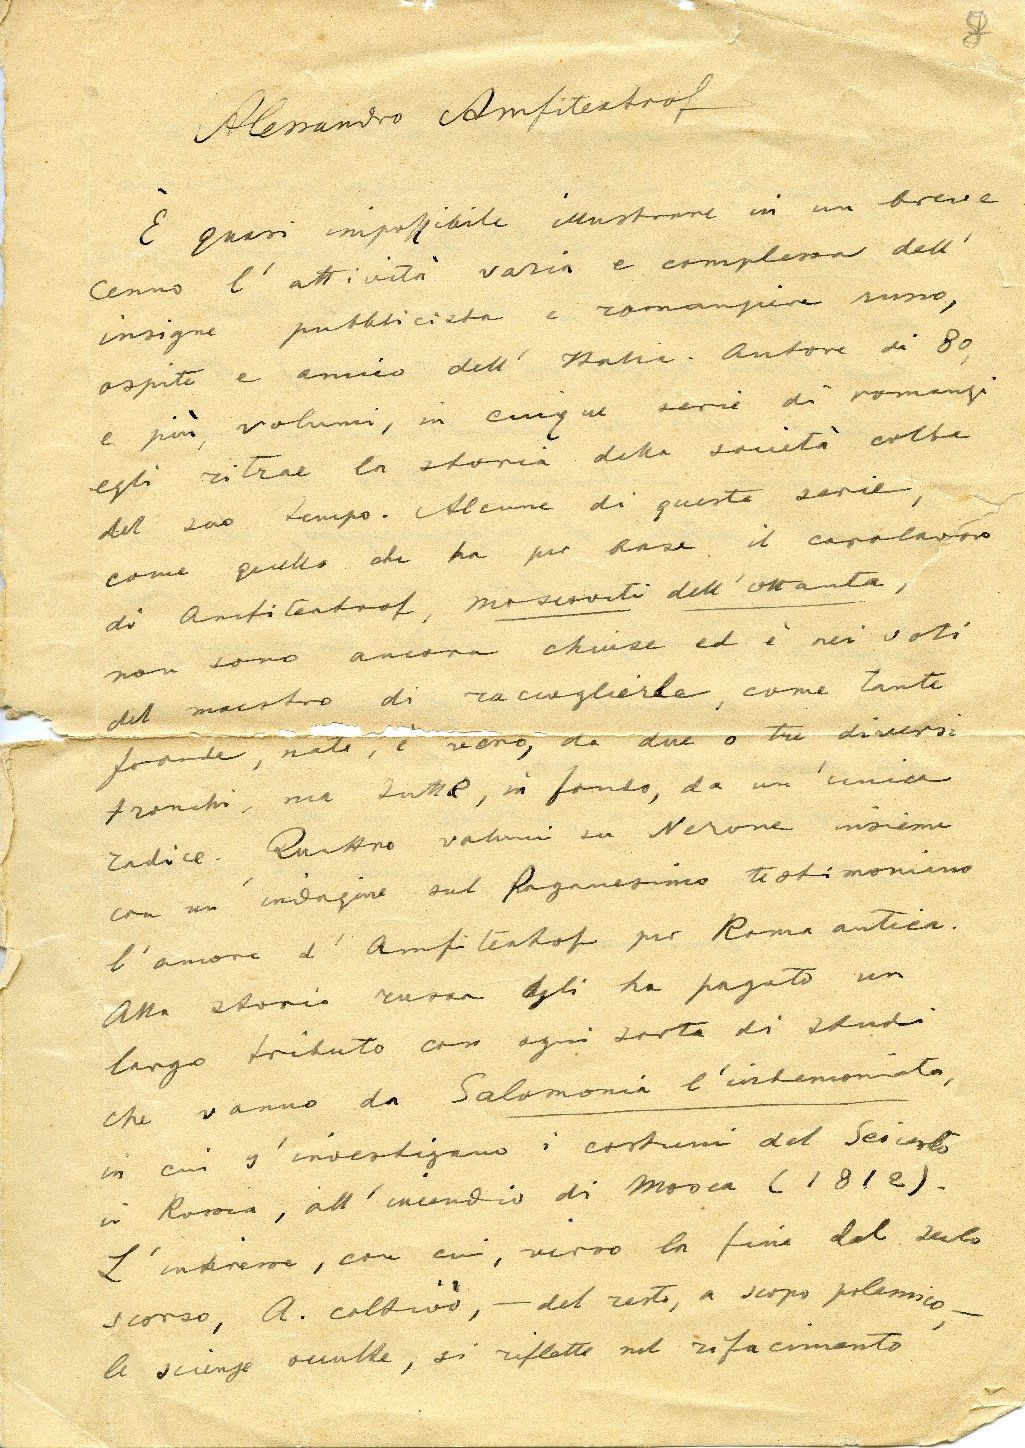 8
Alessandro Amfiteatrof
È quasi impossibile illustrare in un breve
cenno l'attività varia e complessa dell'
insigne pubblicista e romanziere russo,
ospite e amico dell'Italia. Autore di 80,
e più, volumi, in cinque serie di romanzi
egli ritrae la storia della società colta
del suo tempo. Alcune di queste serie,
come quella che ha per base il capolavoro
di Amfiteatrof, Moscoviti dell'ottanta,
non sono ancora chiuse ed è nei voti
del maestro di raccoglierle, come tante
fronde, nate, è vero, da due o tre diversi
tronchi, ma tutte, in fondo, da un'unica
radice. Quattro volumi su Nerone insieme
con un'indagine sul Paganesimo testimoniano
l'amore d'Amfiteatrof per Roma antica.
Alla storia russa egli ha pagato un
largo tributo con ogni sorta di studi
che vanno da Salomonia l'indemoniata,
in cui s'investigano i costumi del Seicento
in Russia, all'incendio di Mosca (1812).
L'interesse, con cui, verso la fine del secolo
scorso, A. coltivò, — del resto, a scopo polemico, —
le scienze occulte, si riflette nel rifacimento